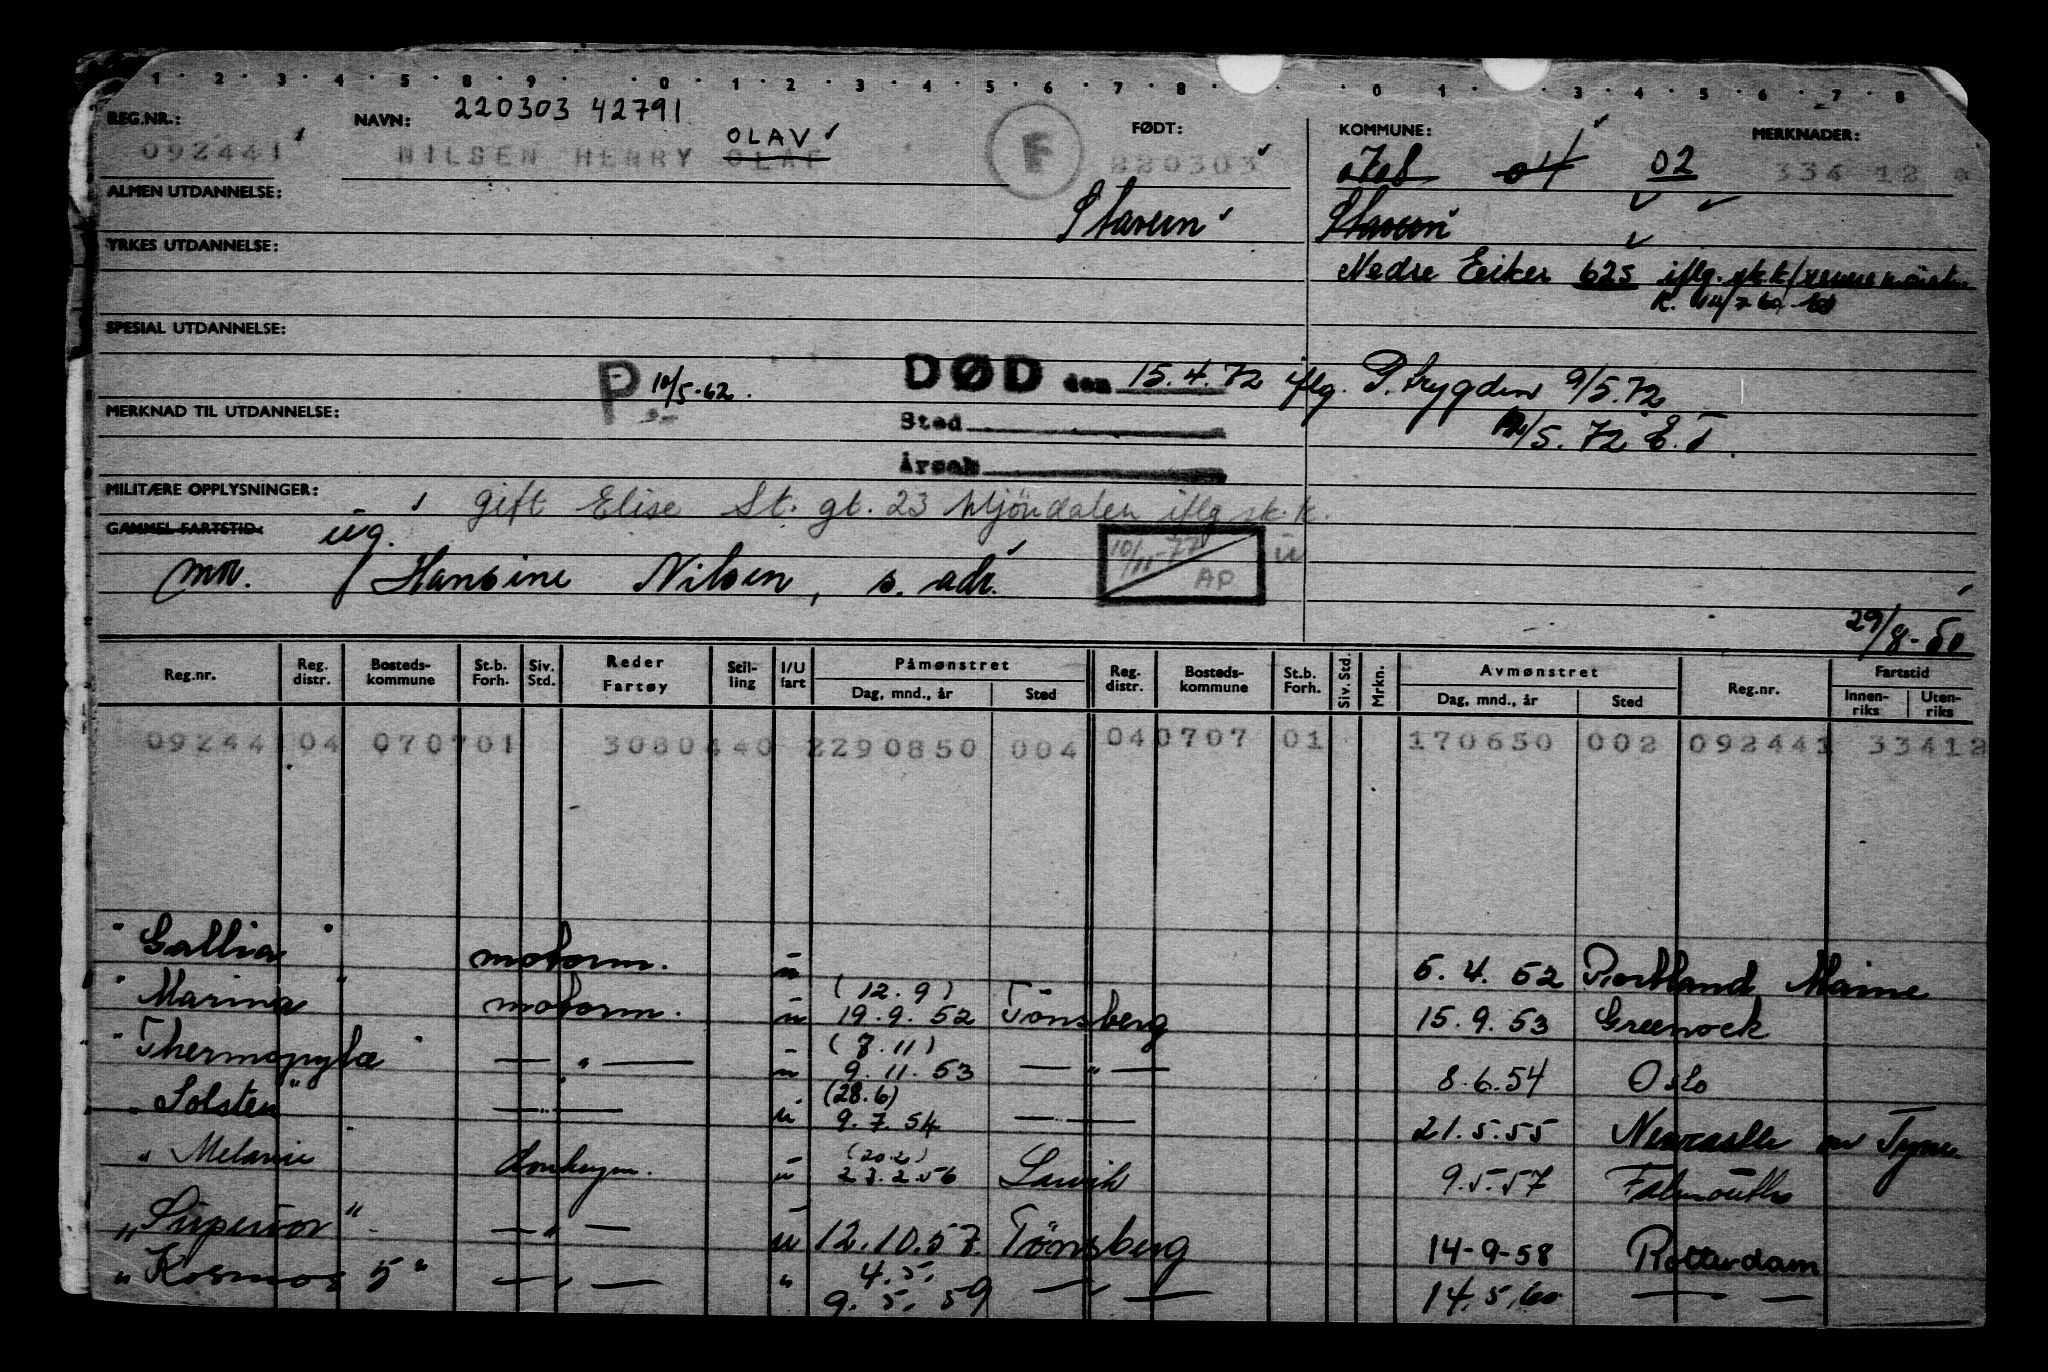 1 2 3 4 5 8 9 0 1 2 3 4 5 6 7 8 0 1 3 4 5 6 7 8
220303 42791
REG.NR.: NAVN: FØDT: KOMMUNE: MERKNADER:
OLAV
092441 NILSEN HENRY OLAF F 220303 04 02 334 12
ALMEN UTDANNELSE:
Stavern Stavern
YRKES UTDANNELSE:
Nedre Eiker 625 iflg. sk.k/
K. 14/7 60.
SPESIAL UTDANNELSE:
P 10/5-62. DØD den 15.4.72 iflg. P. Trygden 9/5.72
MERKNAD TIL UTDANNELSE:
Sted
12/5.72 E.T.
Årsak
MILITÆRE OPPLYSNINGER:
gift Elise St. gt. 23 Mjöndalen iflg sk.k.
GAMMEL FARTSTID:
ug. 10/11-77 AP u
mor. Hansine Nilsen, s. adr.
29/8-50
Reg.nr. Reg. distr. Bosteds-kommune St.b. Forh. Siv. Std. Reder Fartøy Stil-ling I/U fart Påmønstret Dag, mnd., år Sted Reg. distr. Bosteds-kommune St.b. Forh. Siv. Std. Mrkn. Avmønstret Dag, mnd., år Sted Reg.nr. Fartstid Innen-riks Uten-riks
09244 04 070701 3080440 2290850 004 040707 01 170650 002 092441 33412
"Gallia" motorm. u 5.4.52 Portland Maine
"Marina" motorm. u (12.9) 19.9.52 Tönsberg 15.9.53 Greenock
"Thermopylæ" — " — u (7.11) 9.11.53 — " — 8.6.54 Oslo
"Solsten" — " — u (28.6) 9.7.54 — " — 21.5.55 Newcastle on Tyne
"Melanie" donkeym. u (20.2) 23.2.56 Larvik 9.5.57 Falmouth
"Superior" — " — u 12.10.57 Tönsberg 14-9-58 Rotterdam
"Kosmos 5" — " — " 4.5. 9.5.59 — " — 14.5.60 — " —